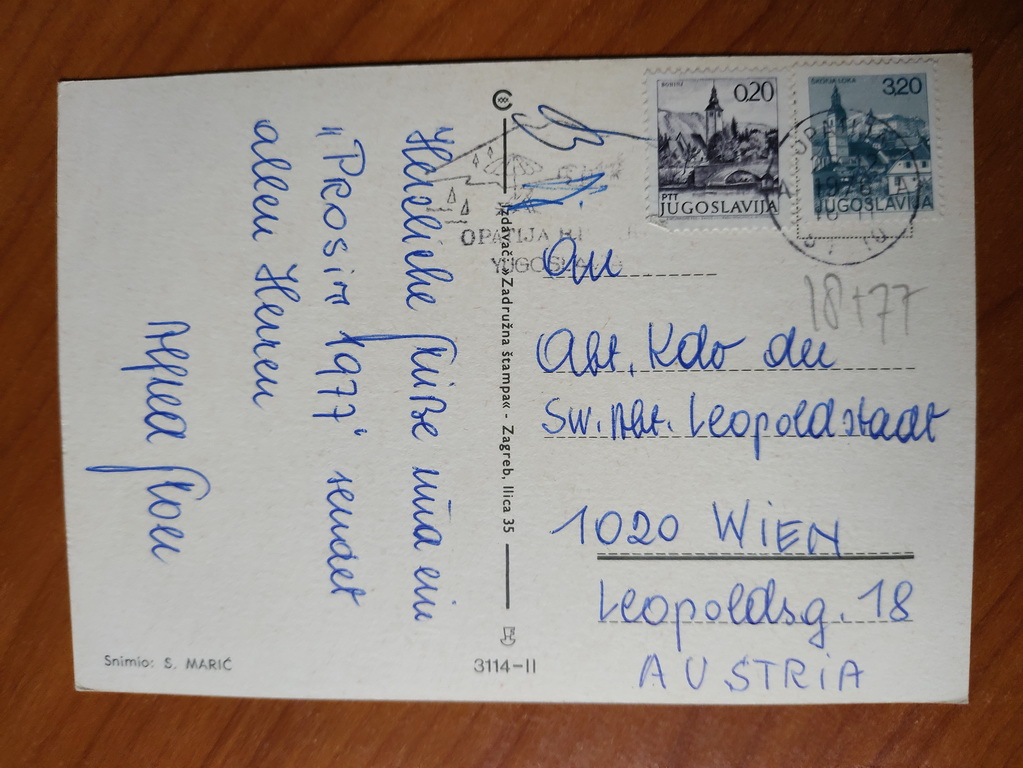 Herzliche Grüße und ein
„Prosit 1977“ sendet
allen Herren
Alfred
BOHINJ
0.20
PTT
JUGOSLAVIJA
ŠKOFJA LOKA
3.20
JUGOSLAVIJA
1976
OPATIJA
YUGOSLAVIA
An
Abt. Kdo der
SW. Abt. Leopoldstadt
1020 WIEN
Leopoldsg. 18
AUSTRIA
18+77
Izdavač: »Zadružna štampa« - Zagreb, Ilica 35
3114-II
Snimio: S. MARIĆ